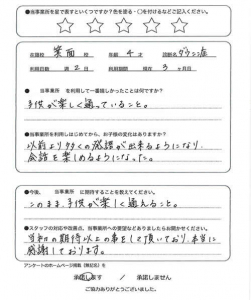 ●当事業所を星で表すといくつですか？色を塗る・○を付けるなどご記入ください。
☆ ☆ ☆ ☆ ☆
在籍校 箕面 校 年齢 4 才 診断名 ダウン症
利用日数 週 2 日 利用期間 現在 3 ヶ月目
●当事業所 を利用して一番嬉しかったことは何ですか？
子供が楽しく通っていること。
●当事業所を利用しはじめてから、お子様の変化はありますか？
以前より多くの発語が出来るようになり、
会話を楽しめるようになった。
●今後、 当事業所 に期待することを教えてください。
このまま、子供が楽しく通えること。
●スタッフの対応や改善点、当事業所への要望などありましたらお聞かせください。
当初の期待以上の事をして頂いており、本当に
感謝しております。
アンケートのホームページ掲載（無記名）を
承諾します ／ 承諾しません
ご協力ありがとうございました。